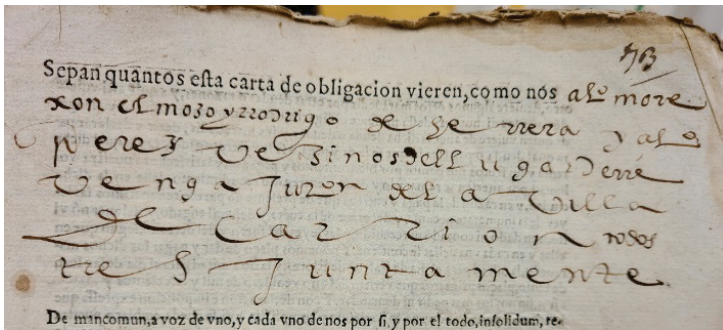 Sepan quantos esta carta de obligacion vieren, como nos alº more
xon el mozo y rrodrigo de herrera y alº
perez vezinos del lugar de rre
venga juron de la villa
de carrion todos
tres juntamente
De mancomun, a voz de vno, y cada vno de nos por si, y por el todo, insolidum, re-